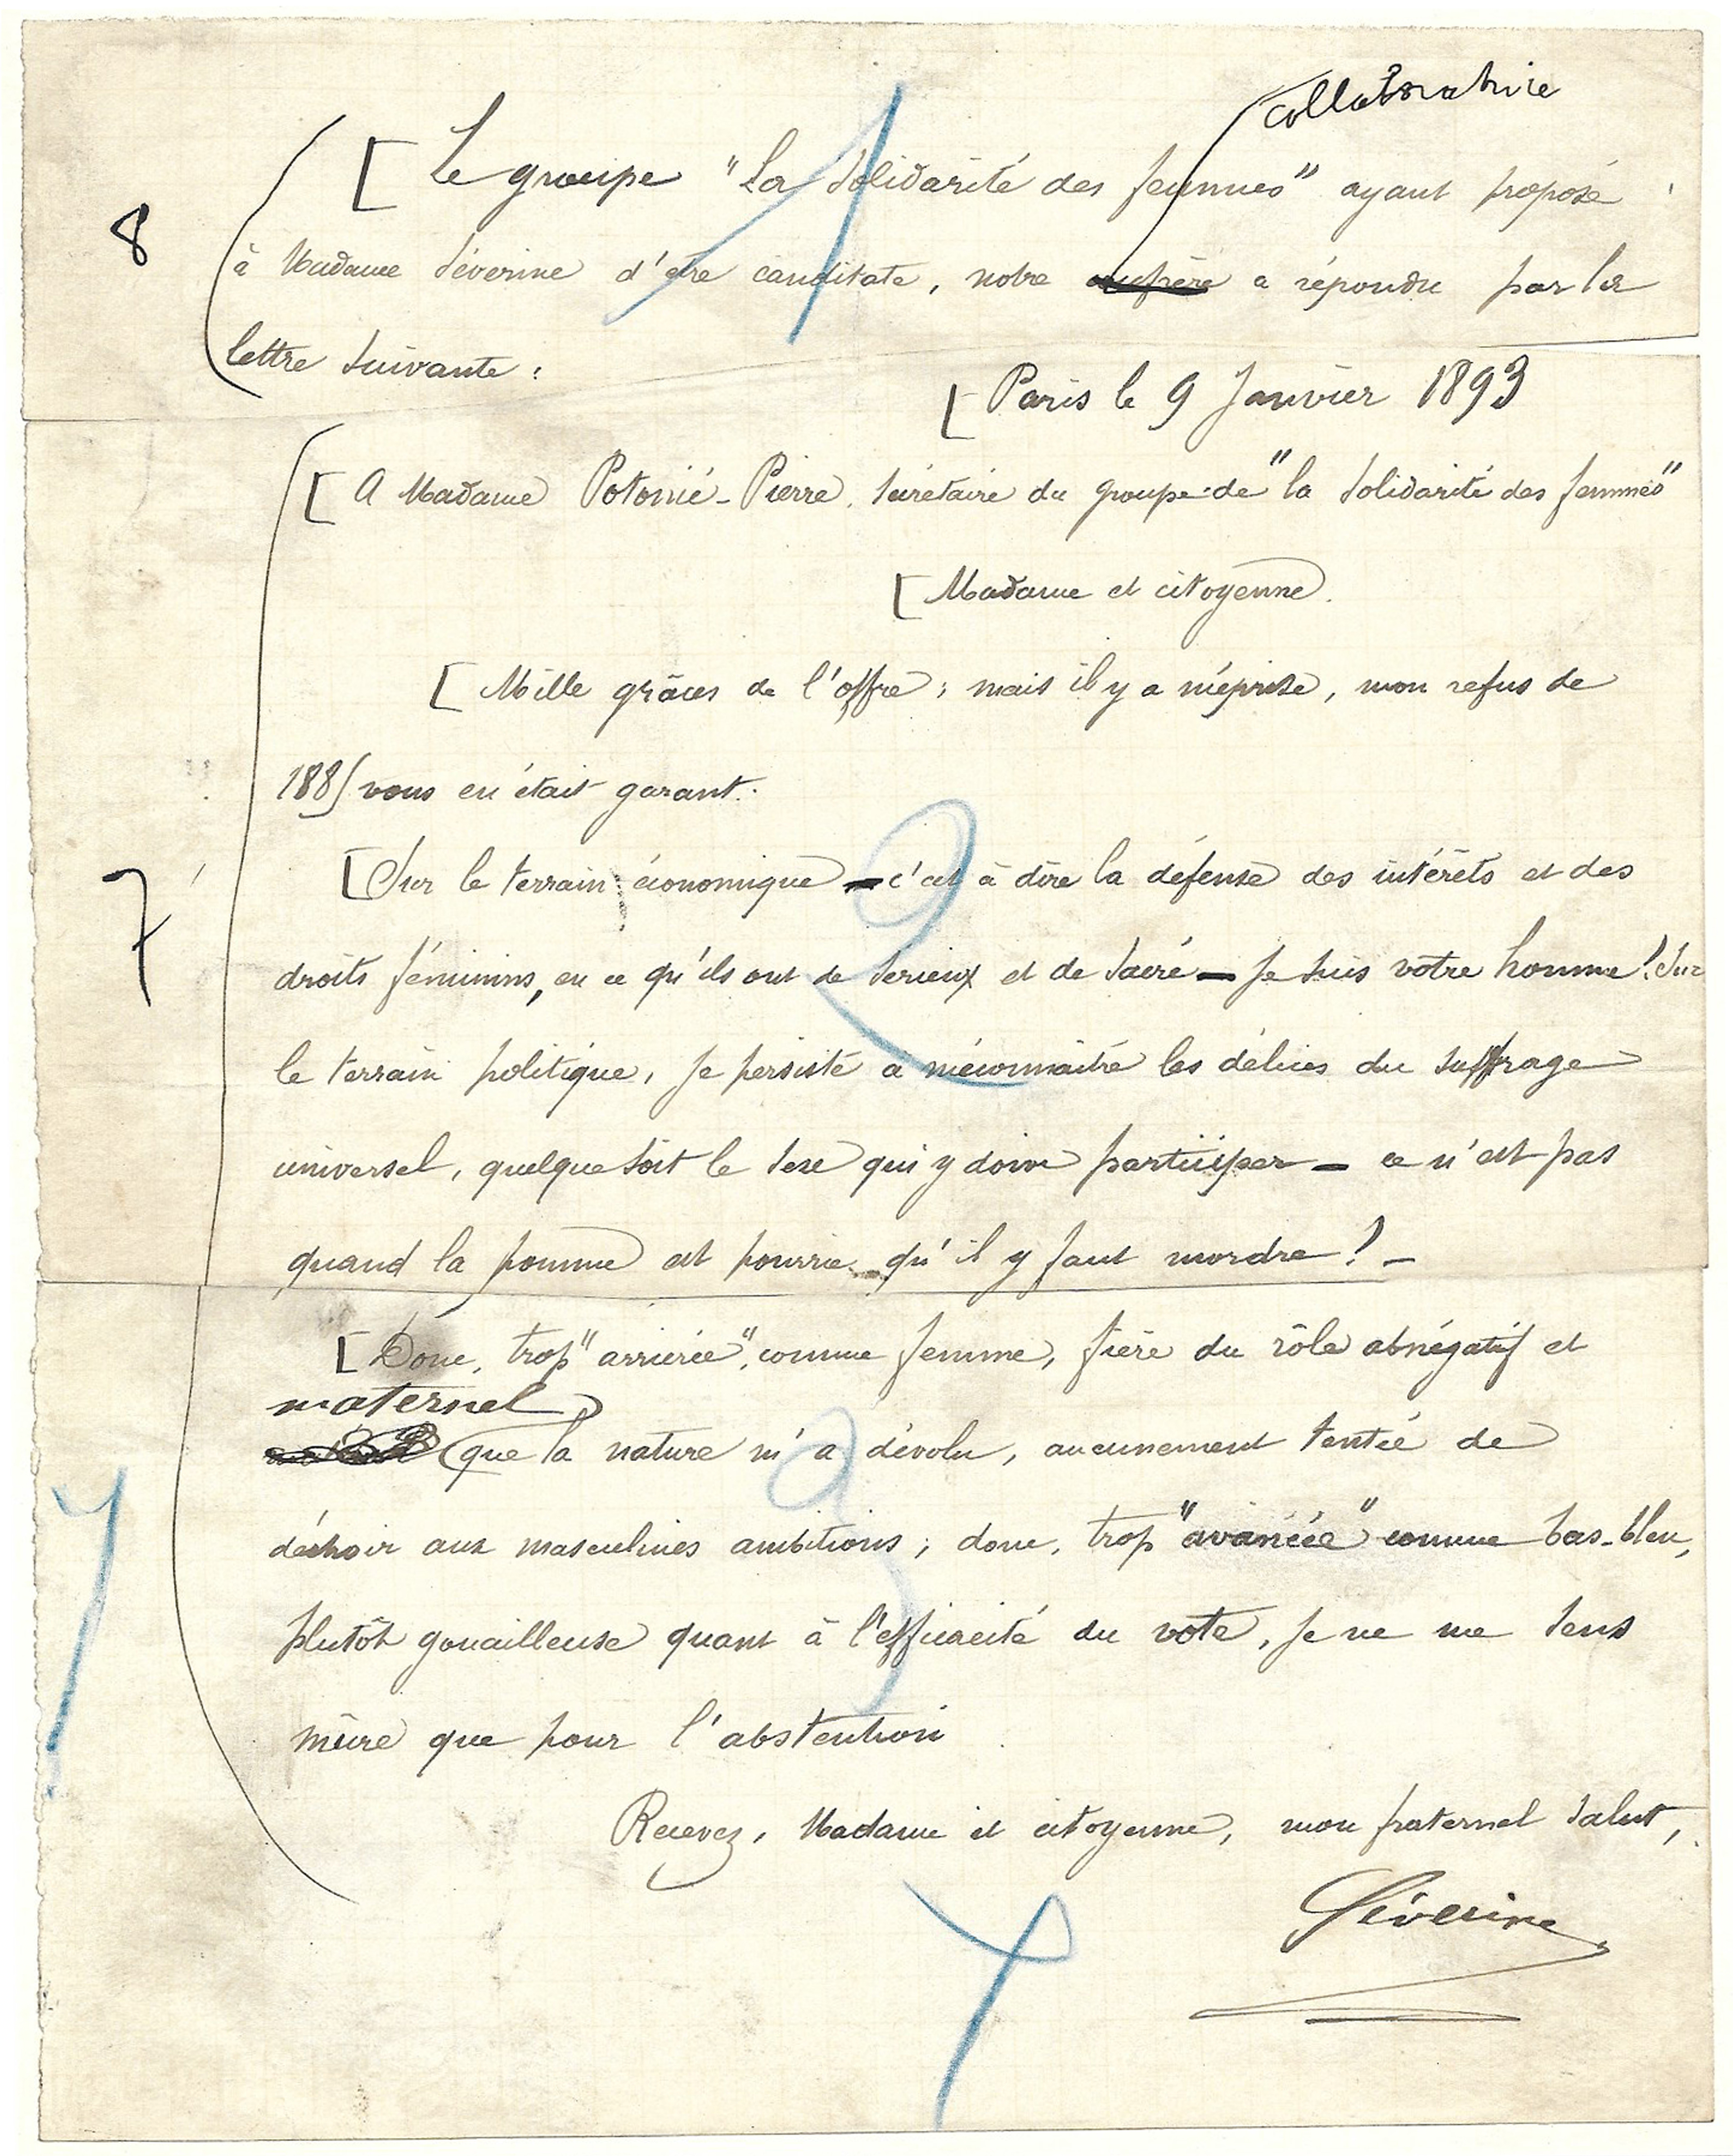 collaboratrice
Le groupe "La Solidarité des femmes" ayant proposé
8
à Madame Séverine d'être canditate, notre confrère a répondu par la
lettre suivante :
1
Paris le 9 Janvier 1893
A Madame Potonié-Pierre. Secrétaire du groupe de "la Solidarité des femmes"
Madame et citoyenne.
Mille grâces de l'offre ; mais il y a méprise, mon refus de
1885 vous en était garant.
Sur le terrain économique — c'est à dire la défense des intérêts et des
7
droits féminins, en ce qu'ils ont de serieux et de sacré — je suis votre homme ! Sur
2
le terrain politique, je persiste à méconnaître les délices du suffrage
universel, quelque soit le sexe qui y doive participer — ce n'est pas
quand la pomme est pourrie qu'il y faut mordre ! —
Donc, trop "arriérée", comme femme, fière du rôle abnégatif et
maternel
que la nature m'a dévolu, aucunement tentée de
3
déchoir aux masculines ambitions ; donc, trop "avancée" comme bas-bleu,
plutôt gouailleuse quant à l'efficacité du vote, je ne me sens
mûre que pour l'abstention
Recevez, Madame et citoyenne, mon fraternel salut,
Séverine